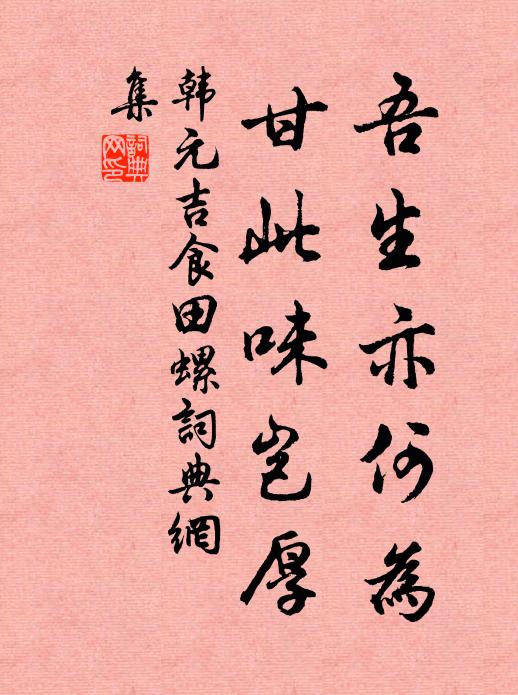 吾生亦何為
甘此味豈厚
韩元吉食田螺詞典網
集
詞典网印